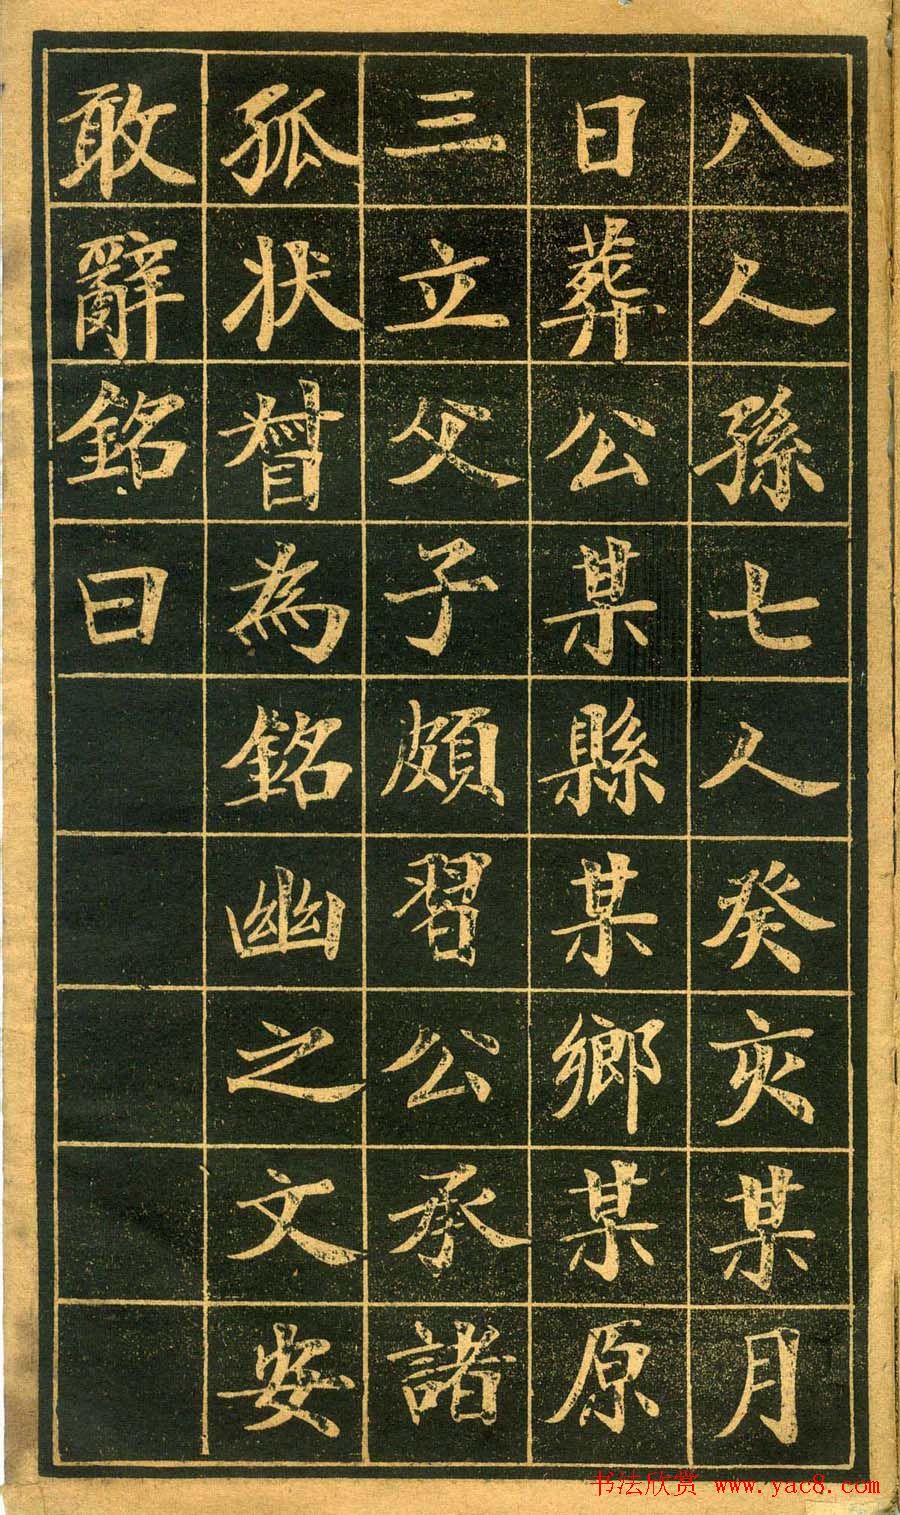 八人孫七人癸亥某月
日葬公某縣某鄉某原
三立父子頗習公承諸
孤状督為銘幽之文安
敢辭銘曰
书法欣赏 www.yac8.com